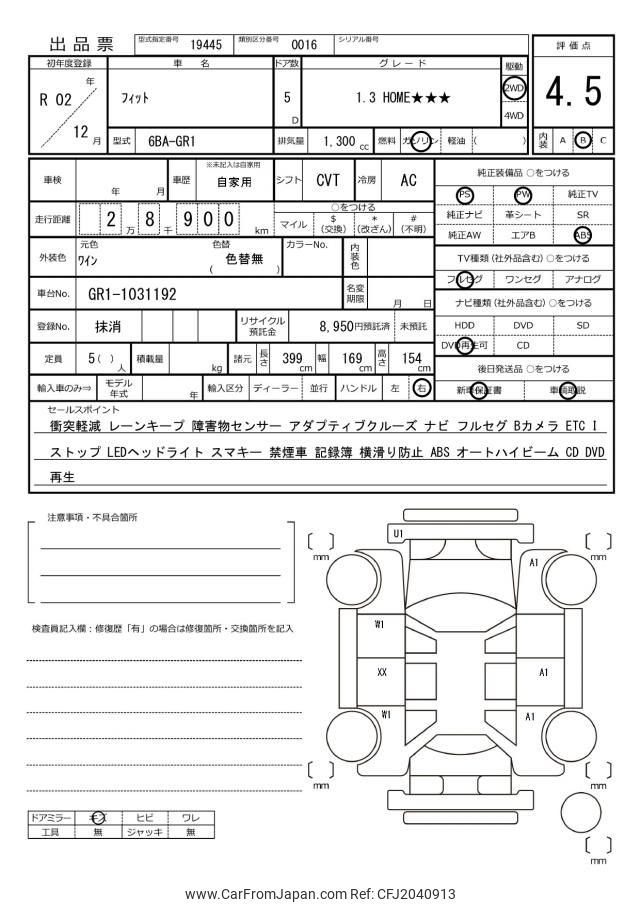 出品票 型式指定番号 19445 類別区分番号 0016 シリアル番号
評価点
4.5
内装 A B C
初年度登録 車名 ドア数 グレード 駆動
R 02 年 フィット 5 D 1.3 HOME★★★ 2WD
12 月 4WD
型式 6BA-GR1 排気量 1,300 cc 燃料 ガソリン 軽油 ( )
車検 年 月 車歴 ※未記入は自家用 自家用 シフト CVT 冷房 AC
走行距離 2 万 8 千 9 0 0 km ○をつける
マイル $(交換) *(改ざん) #(不明)
外装色 元色 ワイン 色替 ( 色替無 ) カラーNo. 内装色
車台No. GR1-1031192 名変期限 月 日
登録No. 抹消 リサイクル預託金 8,950円預託済 未預託
定員 5( )人 積載量 kg 諸元 長さ 399cm 幅 169cm 高さ 154cm
輸入車のみ⇒ モデル年式 年 輸入区分 ディーラー 並行 ハンドル 左 右
純正装備品 ○をつける
PS PW 純正TV
純正ナビ 革シート SR
純正AW エアB ABS
TV種類(社外品含む) ○をつける
フルセグ ワンセグ アナログ
ナビ種類(社外品含む) ○をつける
HDD DVD SD
DVD再生可 CD
後日発送品 ○をつける
新車保証書 車輌取説
セールスポイント
衝突軽減 レーンキープ 障害物センサー アダプティブクルーズ ナビ フルセグ Bカメラ ETC I
ストップ LEDヘッドライト スマキー 禁煙車 記録簿 横滑り防止 ABS オートハイビーム CD DVD
再生
注意事項・不具合箇所
検査員記入欄：修復歴「有」の場合は修復箇所・交換箇所を記入
ドアミラー キズ ヒビ ワレ
工具 無 ジャッキ 無
U1
[ ] mm
[ ] mm
A1
W1
XX
A1
W1
A1
[ ] mm
[ ] mm
[ ] mm
www.CarFromJapan.com Ref: CFJ2040913